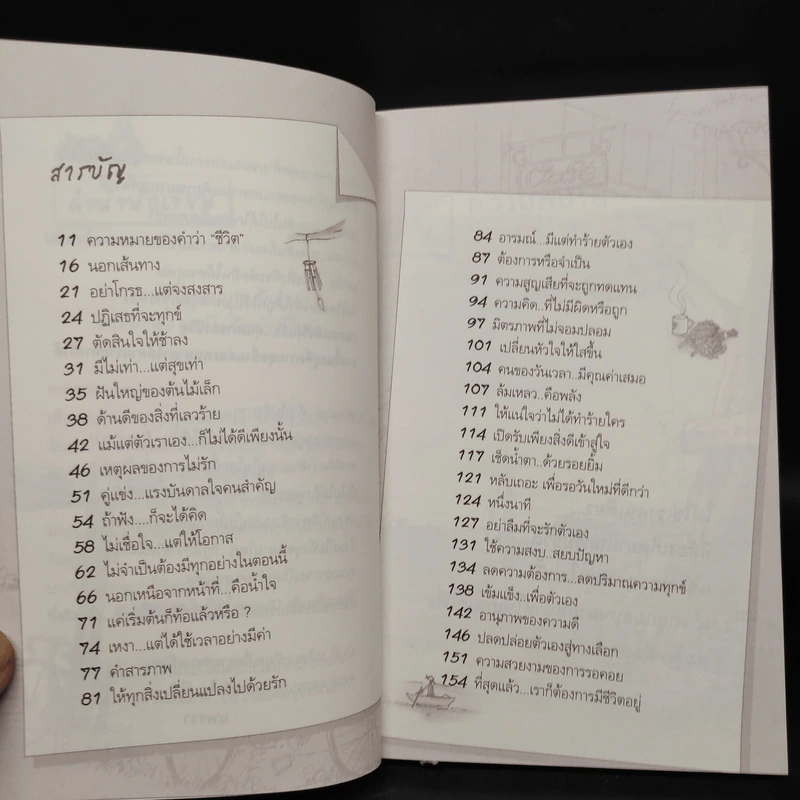 สารบัญ
11 ความหมายของคำว่า "ชีวิต"
16 นอกเส้นทาง
21 อย่าโกรธ...แต่จงสงสาร
24 ปฏิเสธที่จะทุกข์
27 ตัดสินใจให้ช้าลง
31 มีไม่เท่า...แต่สุขเท่า
35 ฝันใหญ่ของต้นไม้เล็ก
38 ด้านดีของสิ่งที่เลวร้าย
42 แม้แต่ตัวเราเอง...ก็ไม่ได้ดีเพียงนั้น
46 เหตุผลของการไม่รัก
51 คู่แข่ง...แรงบันดาลใจคนสำคัญ
54 ถ้าฟัง....ก็จะได้คิด
58 ไม่เชื่อใจ...แต่ให้โอกาส
62 ไม่จำเป็นต้องมีทุกอย่างในตอนนี้
66 นอกเหนือจากหน้าที่...คือน้ำใจ
71 แค่เริ่มต้นก็ท้อแล้วหรือ ?
74 เหงา...แต่ได้ใช้เวลาอย่างมีค่า
77 คำสารภาพ
81 ให้ทุกสิ่งเปลี่ยนแปลงไปด้วยรัก
84 อารมณ์...มีแต่ทำร้ายตัวเอง
87 ต้องการหรือจำเป็น
91 ความสูญเสียที่จะถูกทดแทน
94 ความคิด..ที่ไม่มีผิดหรือถูก
97 มิตรภาพที่ไม่จอมปลอม
101 เปลี่ยนหัวใจให้ใสขึ้น
104 คนของวันเวลา..มีคุณค่าเสมอ
107 ล้มเหลว..คือพลัง
111 ให้แน่ใจว่าไม่ได้ทำร้ายใคร
114 เปิดรับเพียงสิ่งดีเข้าสู่ใจ
117 เช็ดน้ำตา..ด้วยรอยยิ้ม
121 หลับเถอะ เพื่อรอวันใหม่ที่ดีกว่า
124 หนึ่งนาที
127 อย่าลืมที่จะรักตัวเอง
131 ใช้ความสงบ..สยบปัญหา
134 ลดความต้องการ...ลดปริมาณความทุกข์
138 เข้มแข็ง..เพื่อตัวเอง
142 อานุภาพของความดี
146 ปลดปล่อยตัวเองสู่ทางเลือก
151 ความสวยงามของการรอคอย
154 ที่สุดแล้ว...เราก็ต้องการมีชีวิตอยู่